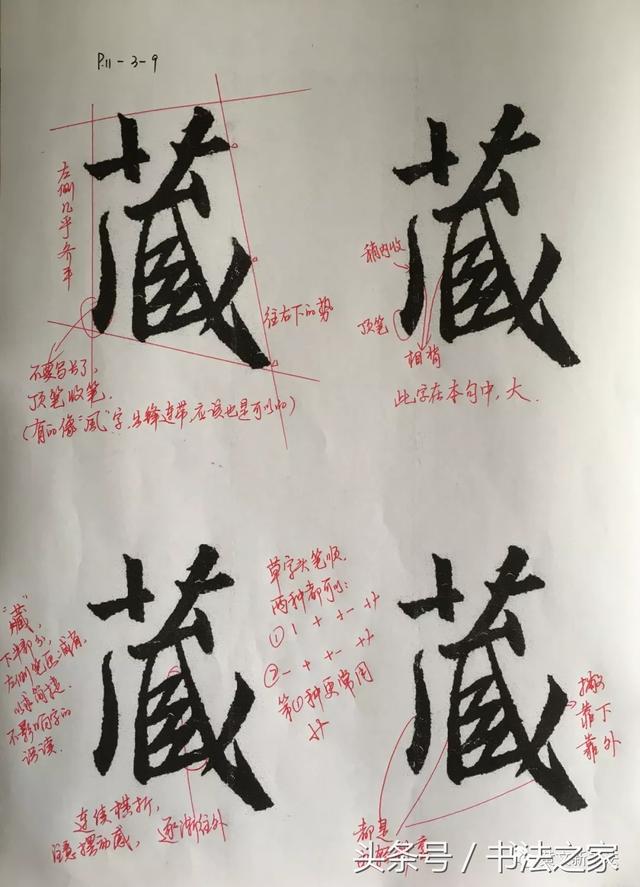 P.11-3-9
藏
左侧几乎齐平
往右下的势
不要写长了,
顶笔收笔.
(有的像"风"字,出锋连带,应该也是可以的)
藏
稍内收
顶笔
此字在本句中,大.
藏
"藏"
下半部分,
左侧
不影响字的
误读.
连续横折,
注意摆动感,
逐渐往外
草字头笔顺,
两种都可以:
①丨 十 艹
②一 十 艹
第①种更常用
藏
靠下
靠外
都是
头条号 / 书法之家